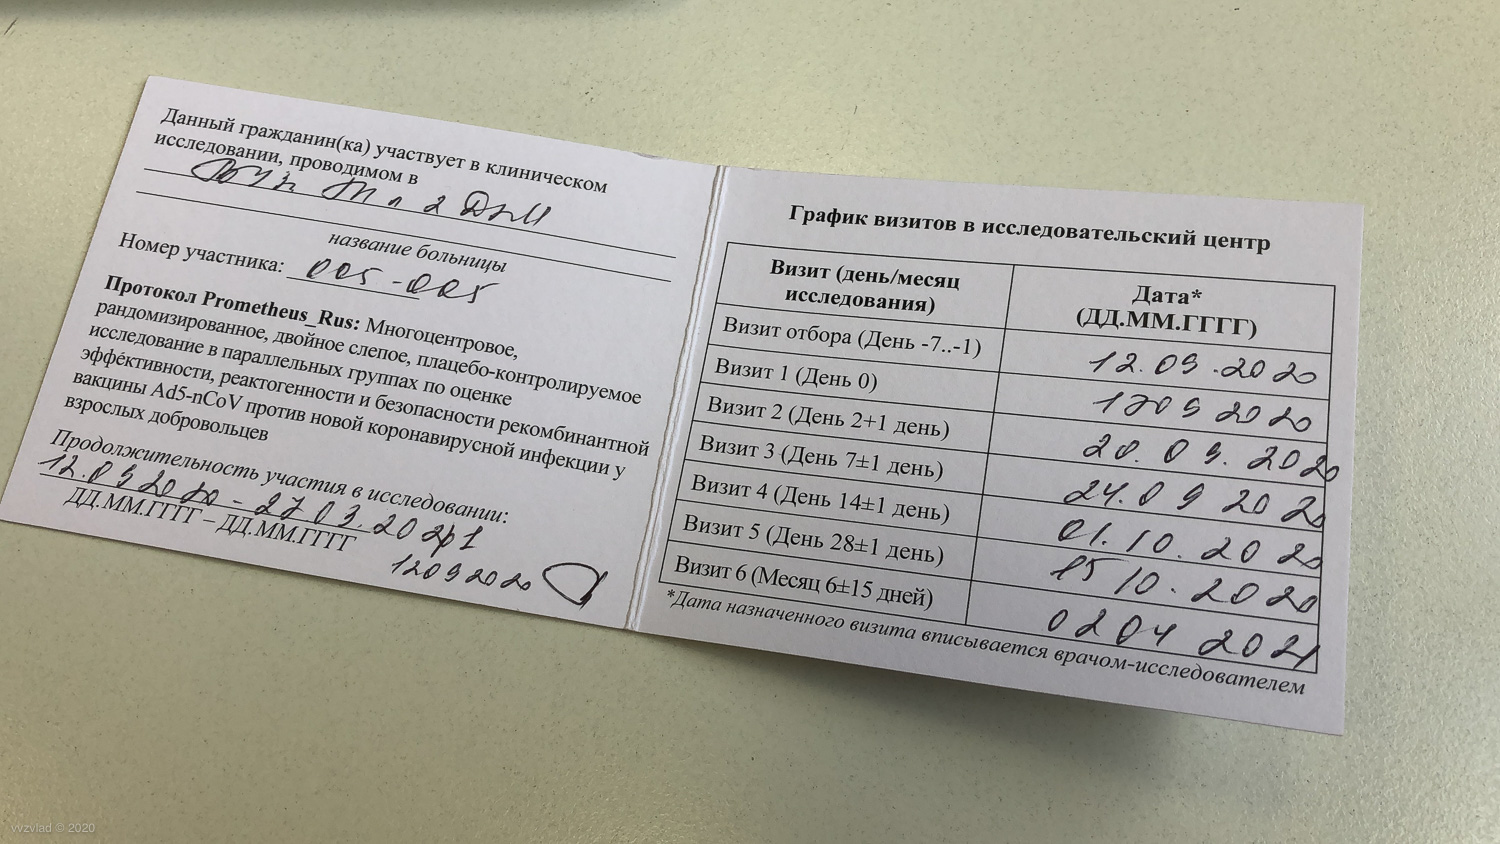 Данный гражданин(ка) участвует в клиническом
исследовании, проводимом в
название больницы
Номер участника: 005-005
Протокол Prometheus_Rus: Многоцентровое,
рандомизированное, двойное слепое, плацебо-контролируемое
исследование в параллельных группах по оценке
эффективности, реактогенности и безопасности рекомбинантной
вакцины Ad5-nCoV против новой коронавирусной инфекции у
взрослых добровольцев
Продолжительность участия в исследовании:
12.09 2020 - 27 03. 2021
ДД.ММ.ГГГГ – ДД.ММ.ГГГГ
12092020
График визитов в исследовательский центр
Визит (день/месяц
исследования)
Дата*
(ДД.ММ.ГГГГ)
Визит отбора (День -7..-1) 12.09.2020
Визит 1 (День 0) 1709 2020
Визит 2 (День 2+1 день) 20.09.2020
Визит 3 (День 7±1 день) 24.09 2020
Визит 4 (День 14±1 день) 01.10.2020
Визит 5 (День 28±1 день) 15 10.2020
Визит 6 (Месяц 6±15 дней) 0204 2021
*Дата назначенного визита вписывается врачом-исследователем
vvzvlad © 2020